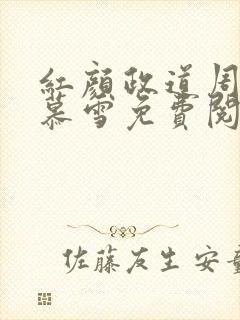 紅顔政道周
慕雪免費閱
佐藤友生安